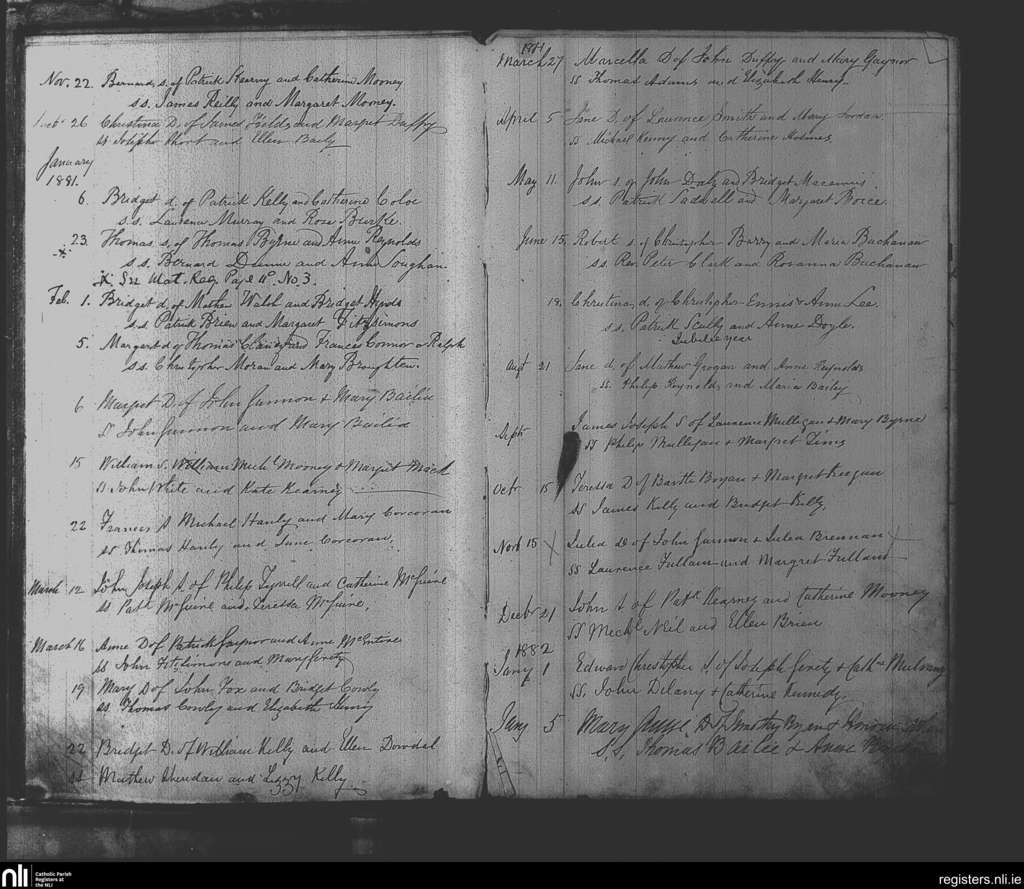 Nov. 22. Bernard, s. of Patrick Kearny and Catherine Mooney
s.s. James Reilly and Margaret Mooney.
26 Christina D. of James Fields and Margret Duffy
ss Joseph Short and Ellen Baily
January
1881.
6. Bridget d. of Patrick Kelly and Catherine Coloe
s.s. Laurence Murray and Rose Burke.
23. Thomas, s. of Thomas Byrne and Anne Reynolds
s.s. Bernard Dunne and Anne
See Mat. Reg. Page 11. No 3.
Feb. 1. Bridget d. of Mathew Walsh and Bridget Hynds
s.s. Patrick Brien and Margaret Fitzsimons
5. Margaret d. of Thomas Clancy and Frances Connor or Ralph
s.s. Christopher Moran and Mary Broughten.
6 Margret D. of John Gannon & Mary Bailid
John Gannon and Mary Bailid
15 William S. William Mich. Mooney & Margret Mack
ss John White and Kate Kearney
22 Francis S Michael Hanly and Mary Corcoran
ss Thomas Hanly and Jane Corcoran.
March 12 John Joseph S. of Philip Tyrrell and Catherine McGuire
ss Patk McGuire and Teressa McGuire.
March 16 Anne D of Patrick Gaynor and Anne McEntire
ss John Fitzsimons and Mary Gerety
19 Mary D of John Fox and Bridget Cowly
ss. Thomas Cowley and Elizabeth Henry
22 Bridget D. of William Kelly and Ellen Dowdal
ss Mathew Sheridan and Lizzy Kelly.
1881
March 27 Marcella D of John Duffy and Mary Gaynor
ss Thomas Adams and Elizabeth Henry.
April 5 Jane D. of Laurence Smith and Mary Jordan
ss Michael Kenny and Catherine Holmes.
May 11. John s. of John Daly and Bridget
s.s. Patrick and Margaret
June 15. Robert s. of Christopher Barry and Maria Buchanan
s.s. Rev. Peter Clark and Rosanna Buchanan
19. Christina, d. of Christopher Ennis & Anne Lee.
s.s. Patrick Scully and Anne Doyle.
Jubilee year
Augt 21 Jane d. of Mathew Grogan and Annie Reynolds
ss. Philip Reynolds and Maria Bailey
Sept James Joseph S of Laurence Mulligan & Mary Byrne
ss Philip Mulligan & Margret
Octr 15 Teressa D of Bartle Bryan & Margret Keegan
ss James Kelly and Bridget Kelly
Novb 15 Julia D of John Gannon & Julia Brennan
ss Laurence Fullam and Margret Fullam
Decbr 21 John S of Patk Kearney and Catherine Mooney
SS Mechl Neil and Ellen Brien
1882
Jany 1 Edward Christopher S. of Joseph Gerety & Cathne Mulvany
SS. John Delany & Catherine Kennedy.
Jany 5 Mary D Timothy Byrn &
S.S. Thomas Bailee & Anne
nli Catholic Parish
Registers at
the NLI
registers.nli.ie